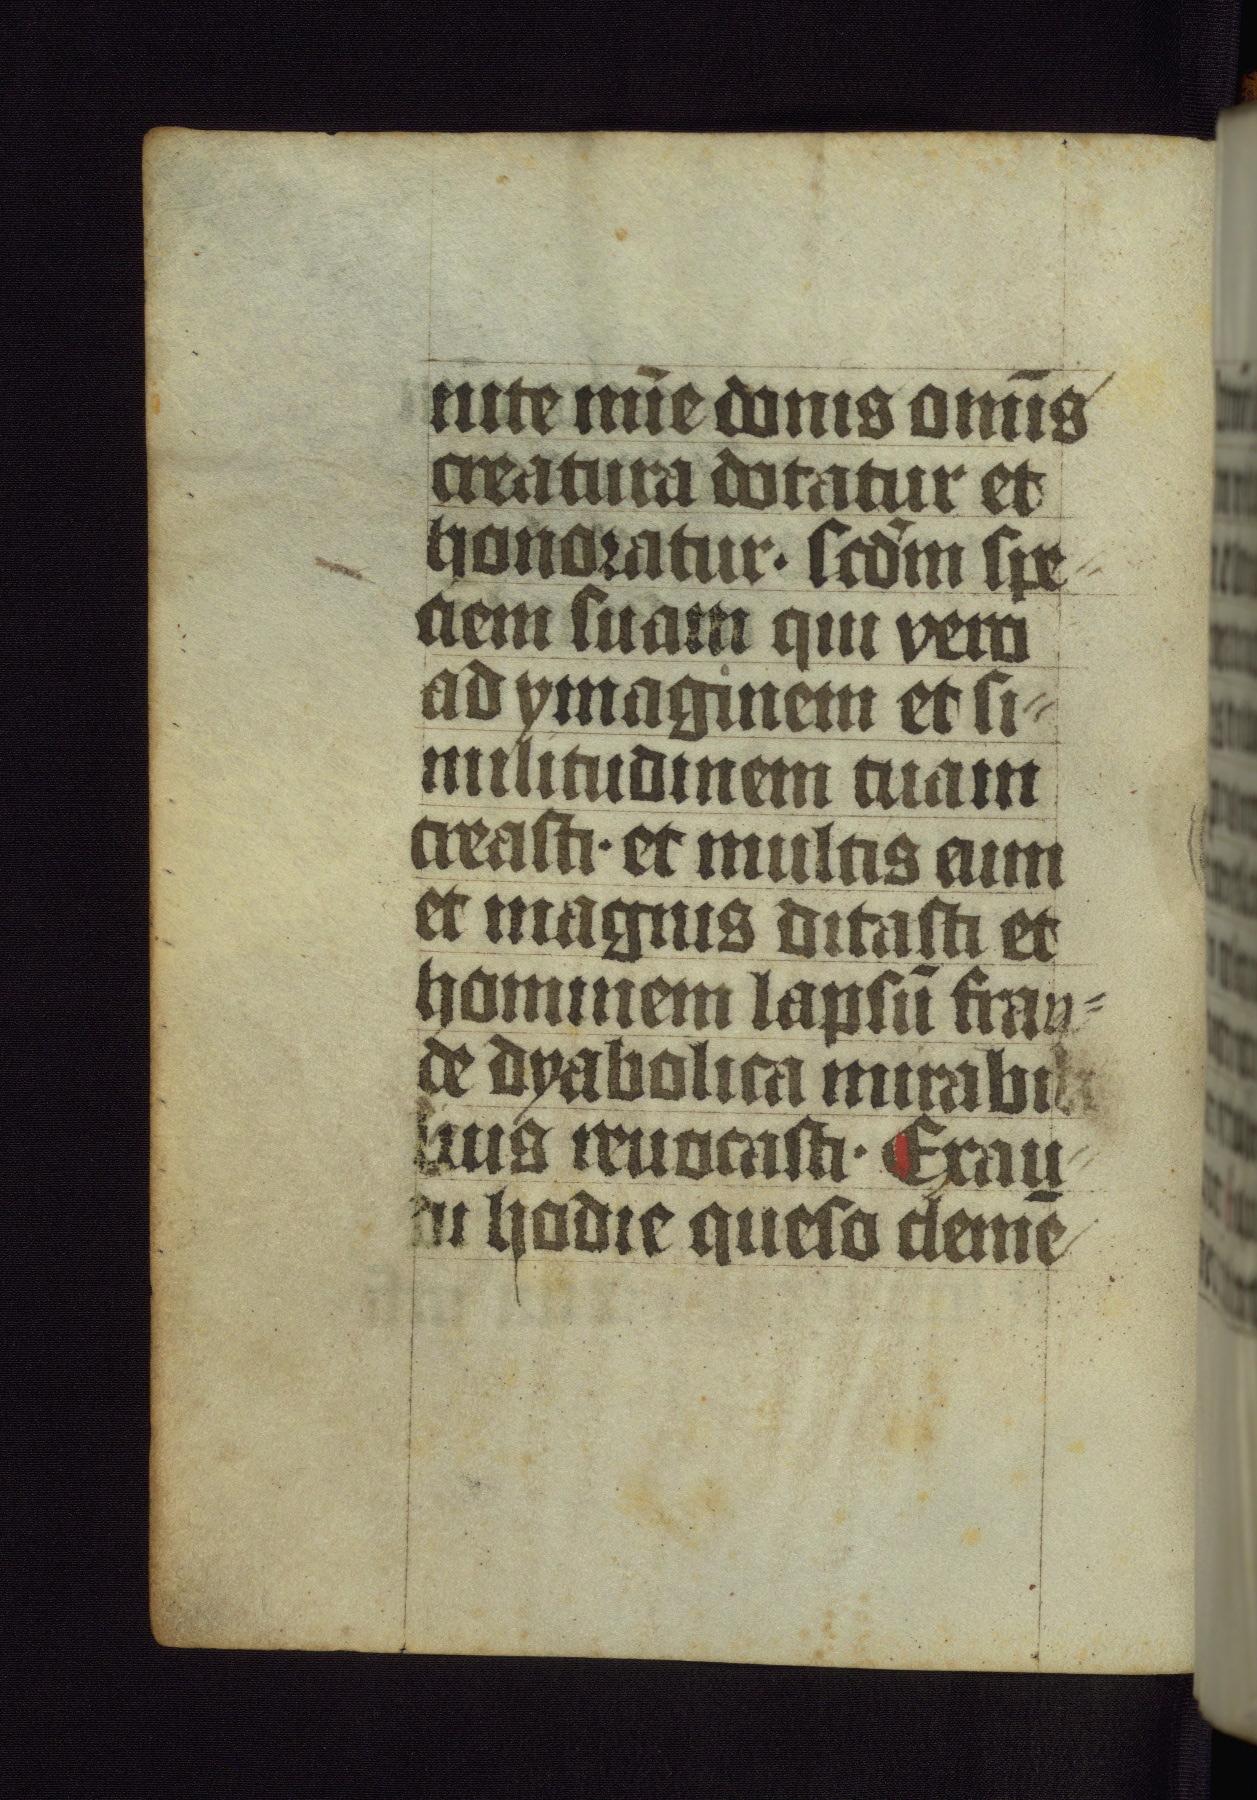 nite mīe donis omīs
creatura dotatur et
honoratur. scdm̄ spe
ciem suam qui vero
ad ymaginem et si
militudinem tuam
creasti. et multis eum
et magnis ditasti et
hominem lapsū frau
de dyabolica mirabili
bus reuocasti. Exau
di hodie queso clemē